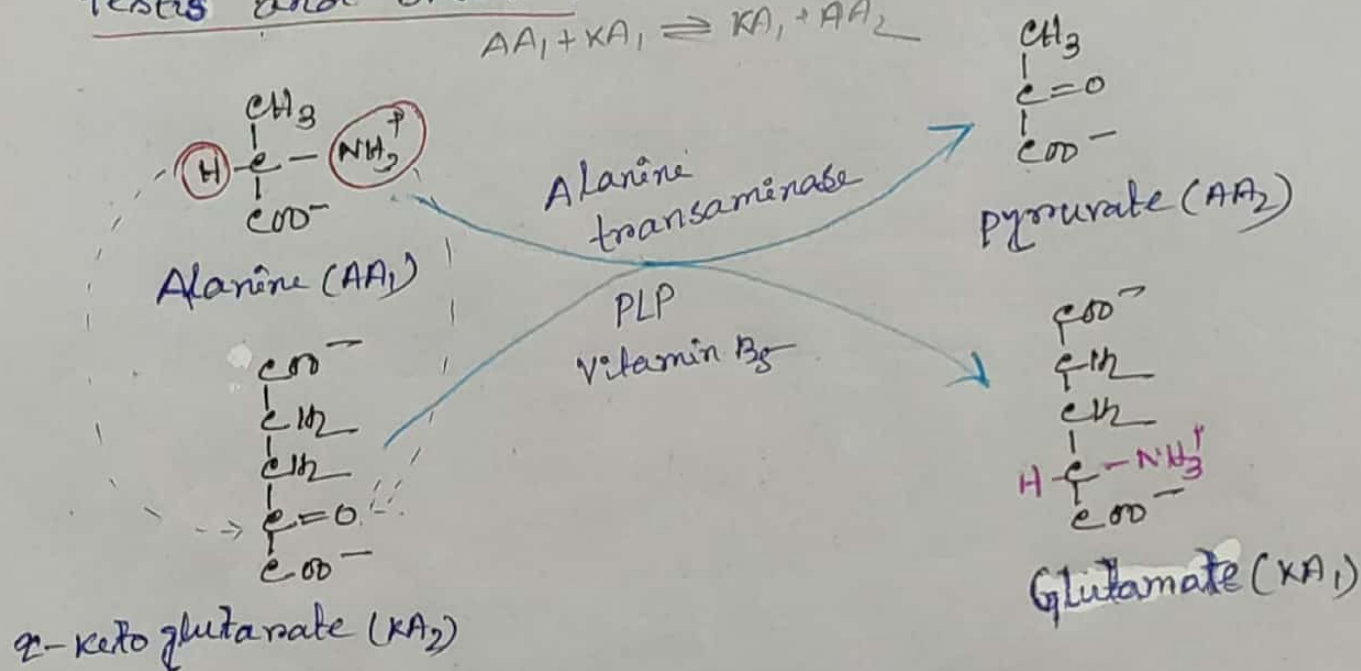 Testis and
AA₁ + KA₁ ⇌ KA₁ + AA₂
CH₃
H-C-NH₃⁺
COO⁻
Alanine (AA₁)
COO⁻
CH₂
CH₂
C=O
COO⁻
α-Keto glutarate (KA₂)
Alanine
transaminase
PLP
Vitamin B₅
CH₃
C=O
COO⁻
Pyruvate (AA₂)
COO⁻
CH₂
CH₂
H-C-NH₃⁺
COO⁻
Glutamate (KA₁)